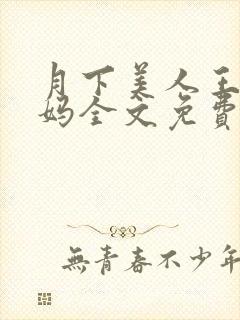 月下美人王
妈全文免費
無青春不少年